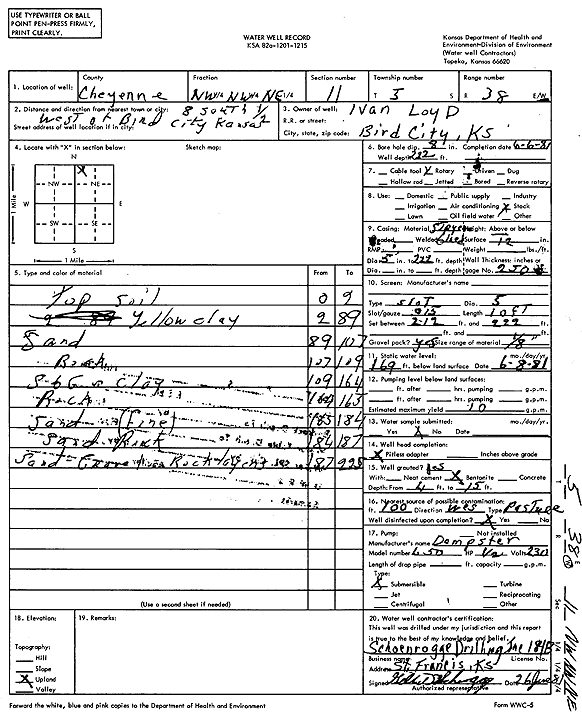 USE TYPEWRITER OR BALL
POINT PEN-PRESS FIRMLY,
PRINT CLEARLY.
WATER WELL RECORD
KSA 82a-1201-1215
Kansas Department of Health and
Environment-Division of Environment
(Water well Contractors)
Topeka, Kansas 66620
1. Location of well: County Cheyenne Fraction NW¼ NW¼ NE¼ Section number 11 Township number T 5 S Range number R 38 E/W
2. Distance and direction from nearest town or city: 8 South 1/2
West of Bird City Kansas
Street address of well location if in city:
3. Owner of well: Ivan Loyd
R.R. or street:
City, state, zip code: Bird City, KS
4. Locate with "X" in section below: Sketch map:
N
X
NW NE
W E
SW SE
S
1 Mile
1 Mile
6. Bore hole dia. 8 in. Completion date 6-6-81
Well depth 222 ft.
7. Cable tool X Rotary Driven Dug
Hollow rod Jetted Bored Reverse rotary
8. Use: Domestic Public supply Industry
Irrigation Air conditioning X Stock
Lawn Oil field water Other
9. Casing: Material Height: Above or below
Welded Surface 12 in.
RMP PVC Weight lbs./ft.
Dia. 5 in. to 222 ft. depth Wall Thickness: inches or
Dia. in. to ft. depth gage No.
5. Type and color of material From To
Top Soil 0 2
Yellow clay 2 89
Sand 89 107
Rock 107 109
Clay 109 164
Rock 165
Sand (Fine) 185 184
Sand Rock 184 187
Sand 187 228
(Use a second sheet if needed)
10. Screen: Manufacturer's name
Type Slot Dia. 5
Slot/gauze Length 10 FT
Set between 212 ft. and 222 ft.
ft. and ft.
Gravel pack? yes Size range of material 1/8"
11. Static water level: mo./day/yr.
169 ft. below land surface Date 6-8-81
12. Pumping level below land surfaces:
ft. after hrs. pumping g.p.m.
ft. after hrs. pumping g.p.m.
Estimated maximum yield 10 g.p.m.
13. Water sample submitted: mo./day/yr.
Yes X No Date
14. Well head completion:
X Pitless adapter Inches above grade
15. Well grouted? yes
With: Neat cement X Bentonite Concrete
Depth: From 4 ft. to 15 ft.
16. Nearest source of possible contamination:
ft. 100 Direction Wes Type Pasture
Well disinfected upon completion? X Yes No
17. Pump: Not installed
Manufacturer's name Dempster
Model number HP 1/2 Volts 230
Length of drop pipe ft. capacity g.p.m.
Type:
X Submersible Turbine
Jet Reciprocating
Centrifugal Other
18. Elevation:
Topography:
Hill
Slope
X Upland
Valley
19. Remarks:
20. Water well contractor's certification:
This well was drilled under my jurisdiction and this report
is true to the best of my knowledge and belief.
Schoenrogge Drilling Inc 181B
Business name License No.
Address St. Francis, KS
Signed Date 26 June 81
Authorized representative
Forward the white, blue and pink copies to the Department of Health and Environment
Form WWC-5
T 5 R 38 E W Sec 11 NW NW NE
1/4 1/4 1/4